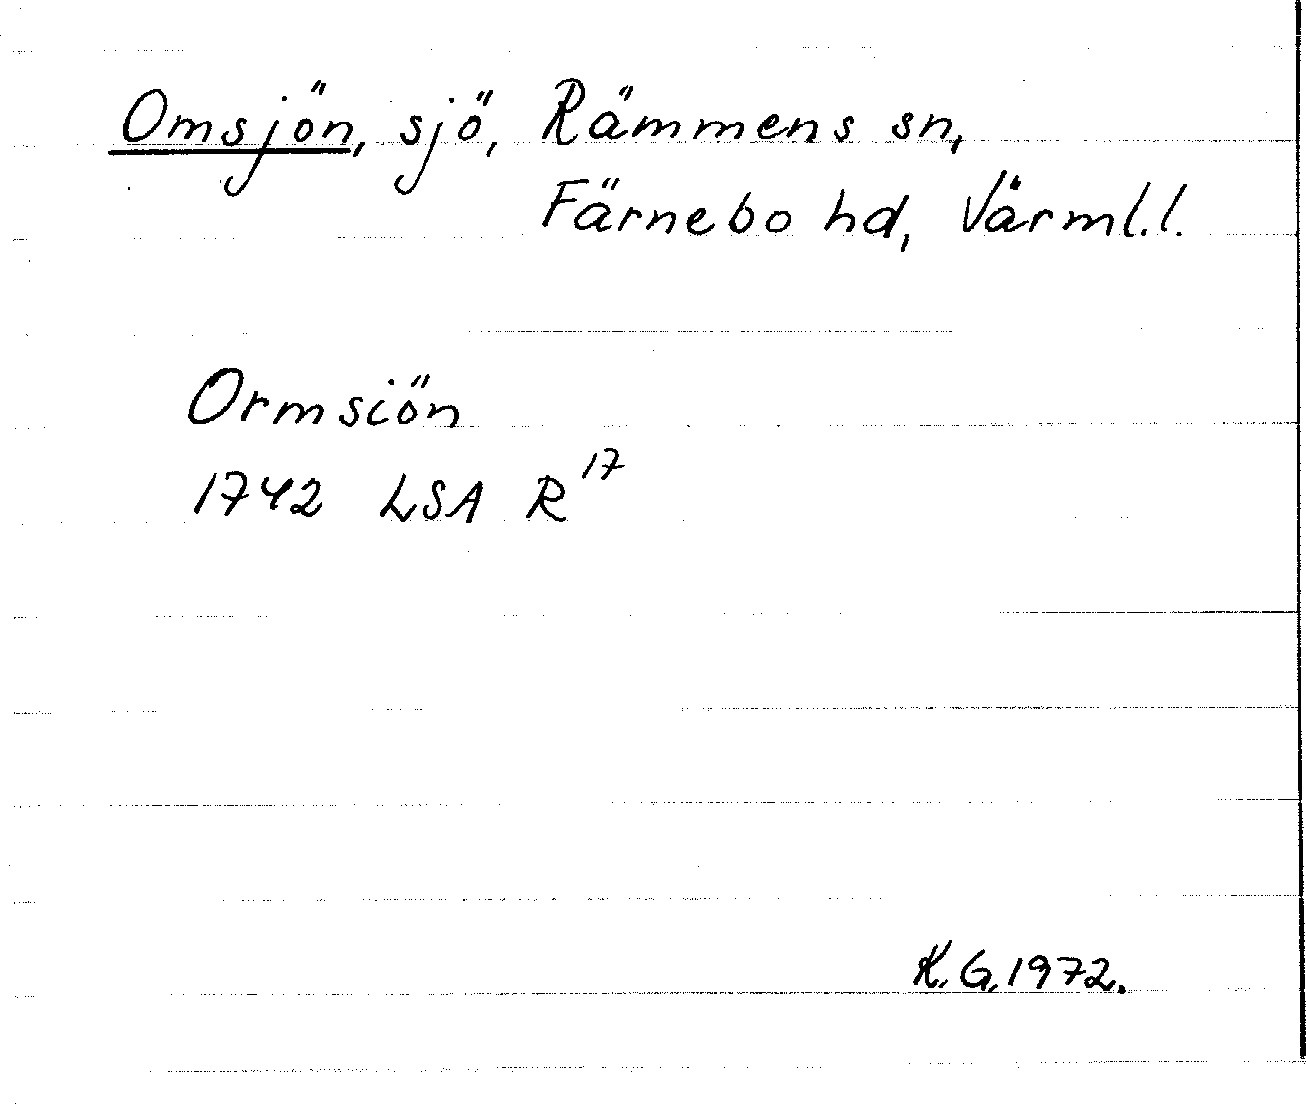 Omsjön, sjö, Rämmens sn,
Färnebo hd, Värml.l.
Ormsiön
1742 LSA R¹⁷
K.G.1972.